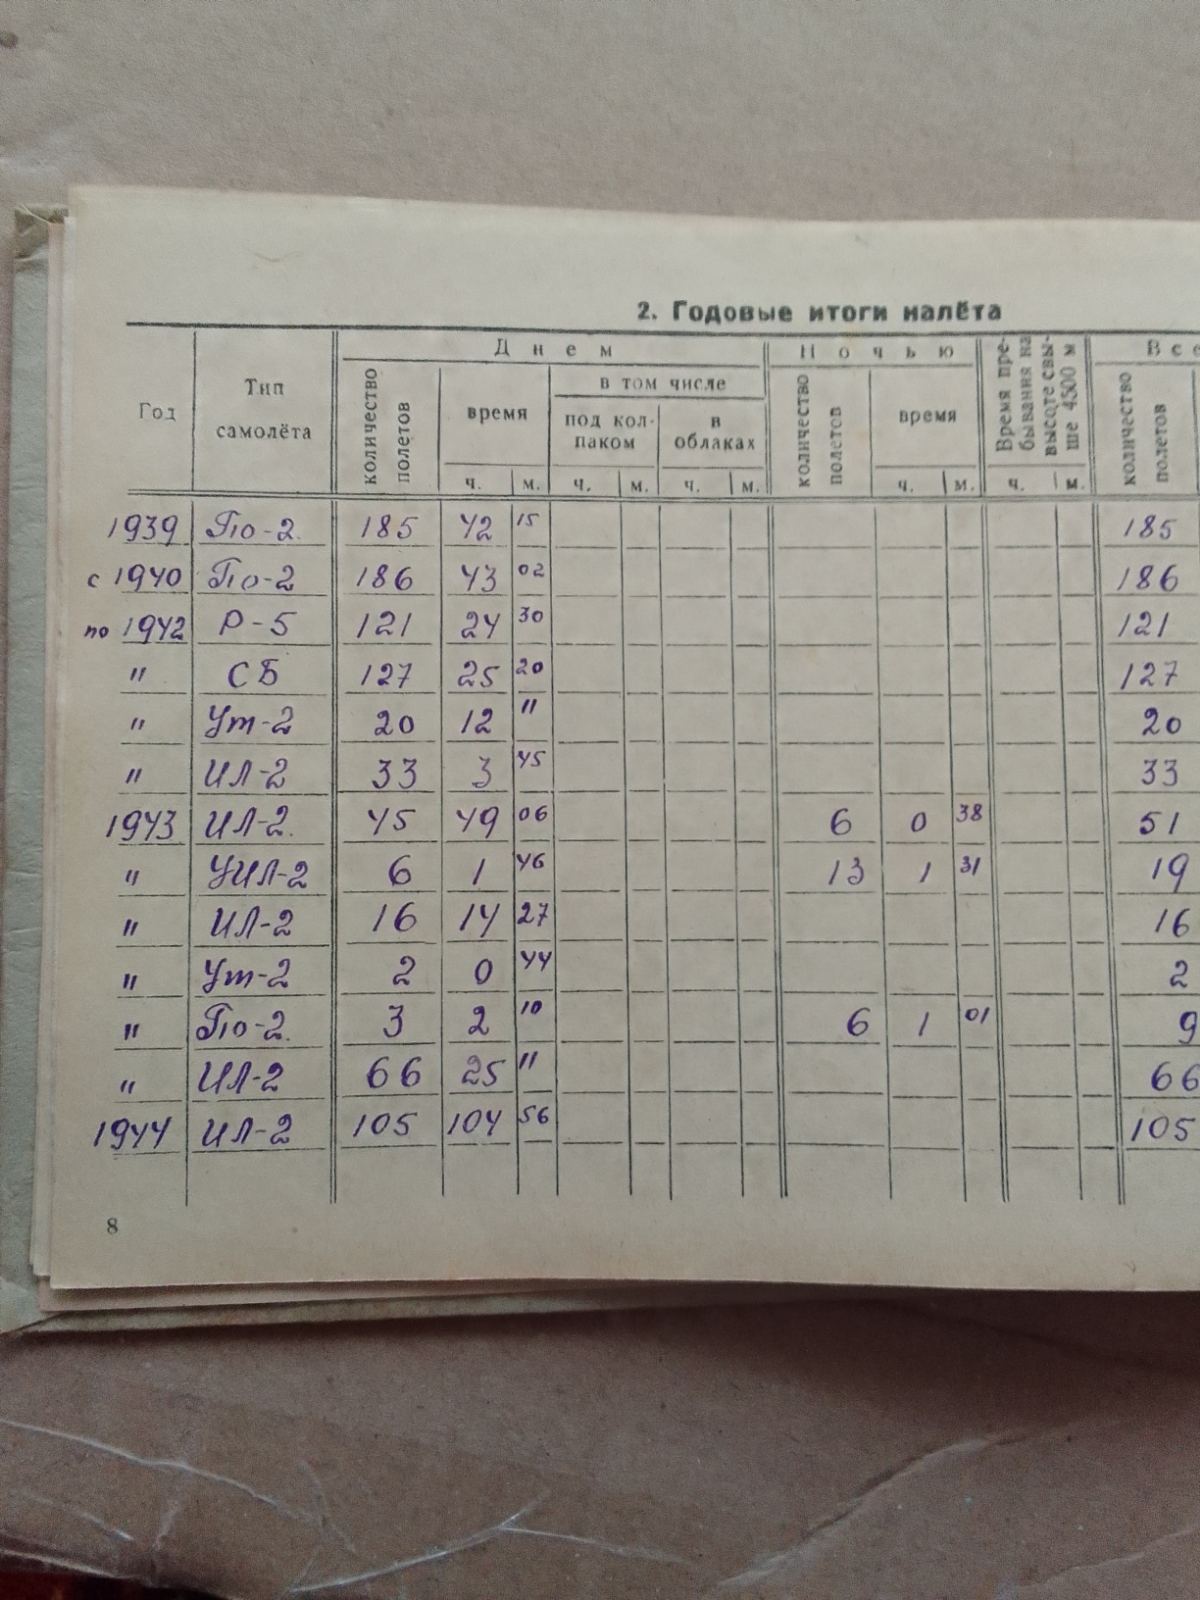 2. Годовые итоги налёта
Год Тип самолёта Днем Ночью Время пребывания на высоте свыше 4500 м
количество полетов время в том числе количество полетов время количество полетов
под колпаком в облаках
ч. м. ч. м. ч. м. ч. м. ч. м.
1939 По-2. 185 42 15 185
с 1940 По-2 186 43 02 186
по 1942 Р-5 121 24 30 121
" СБ 127 25 20 127
" Ут-2 20 12 " 20
" ИЛ-2 33 3 45 33
1943 ИЛ-2. 45 49 06 6 0 38 51
" УИЛ-2 6 1 46 13 1 31 19
" ИЛ-2 16 14 27 16
" Ут-2 2 0 44 2
" По-2. 3 2 10 6 1 01 9
" ИЛ-2 66 25 " 66
1944 ИЛ-2 105 104 56 105
8